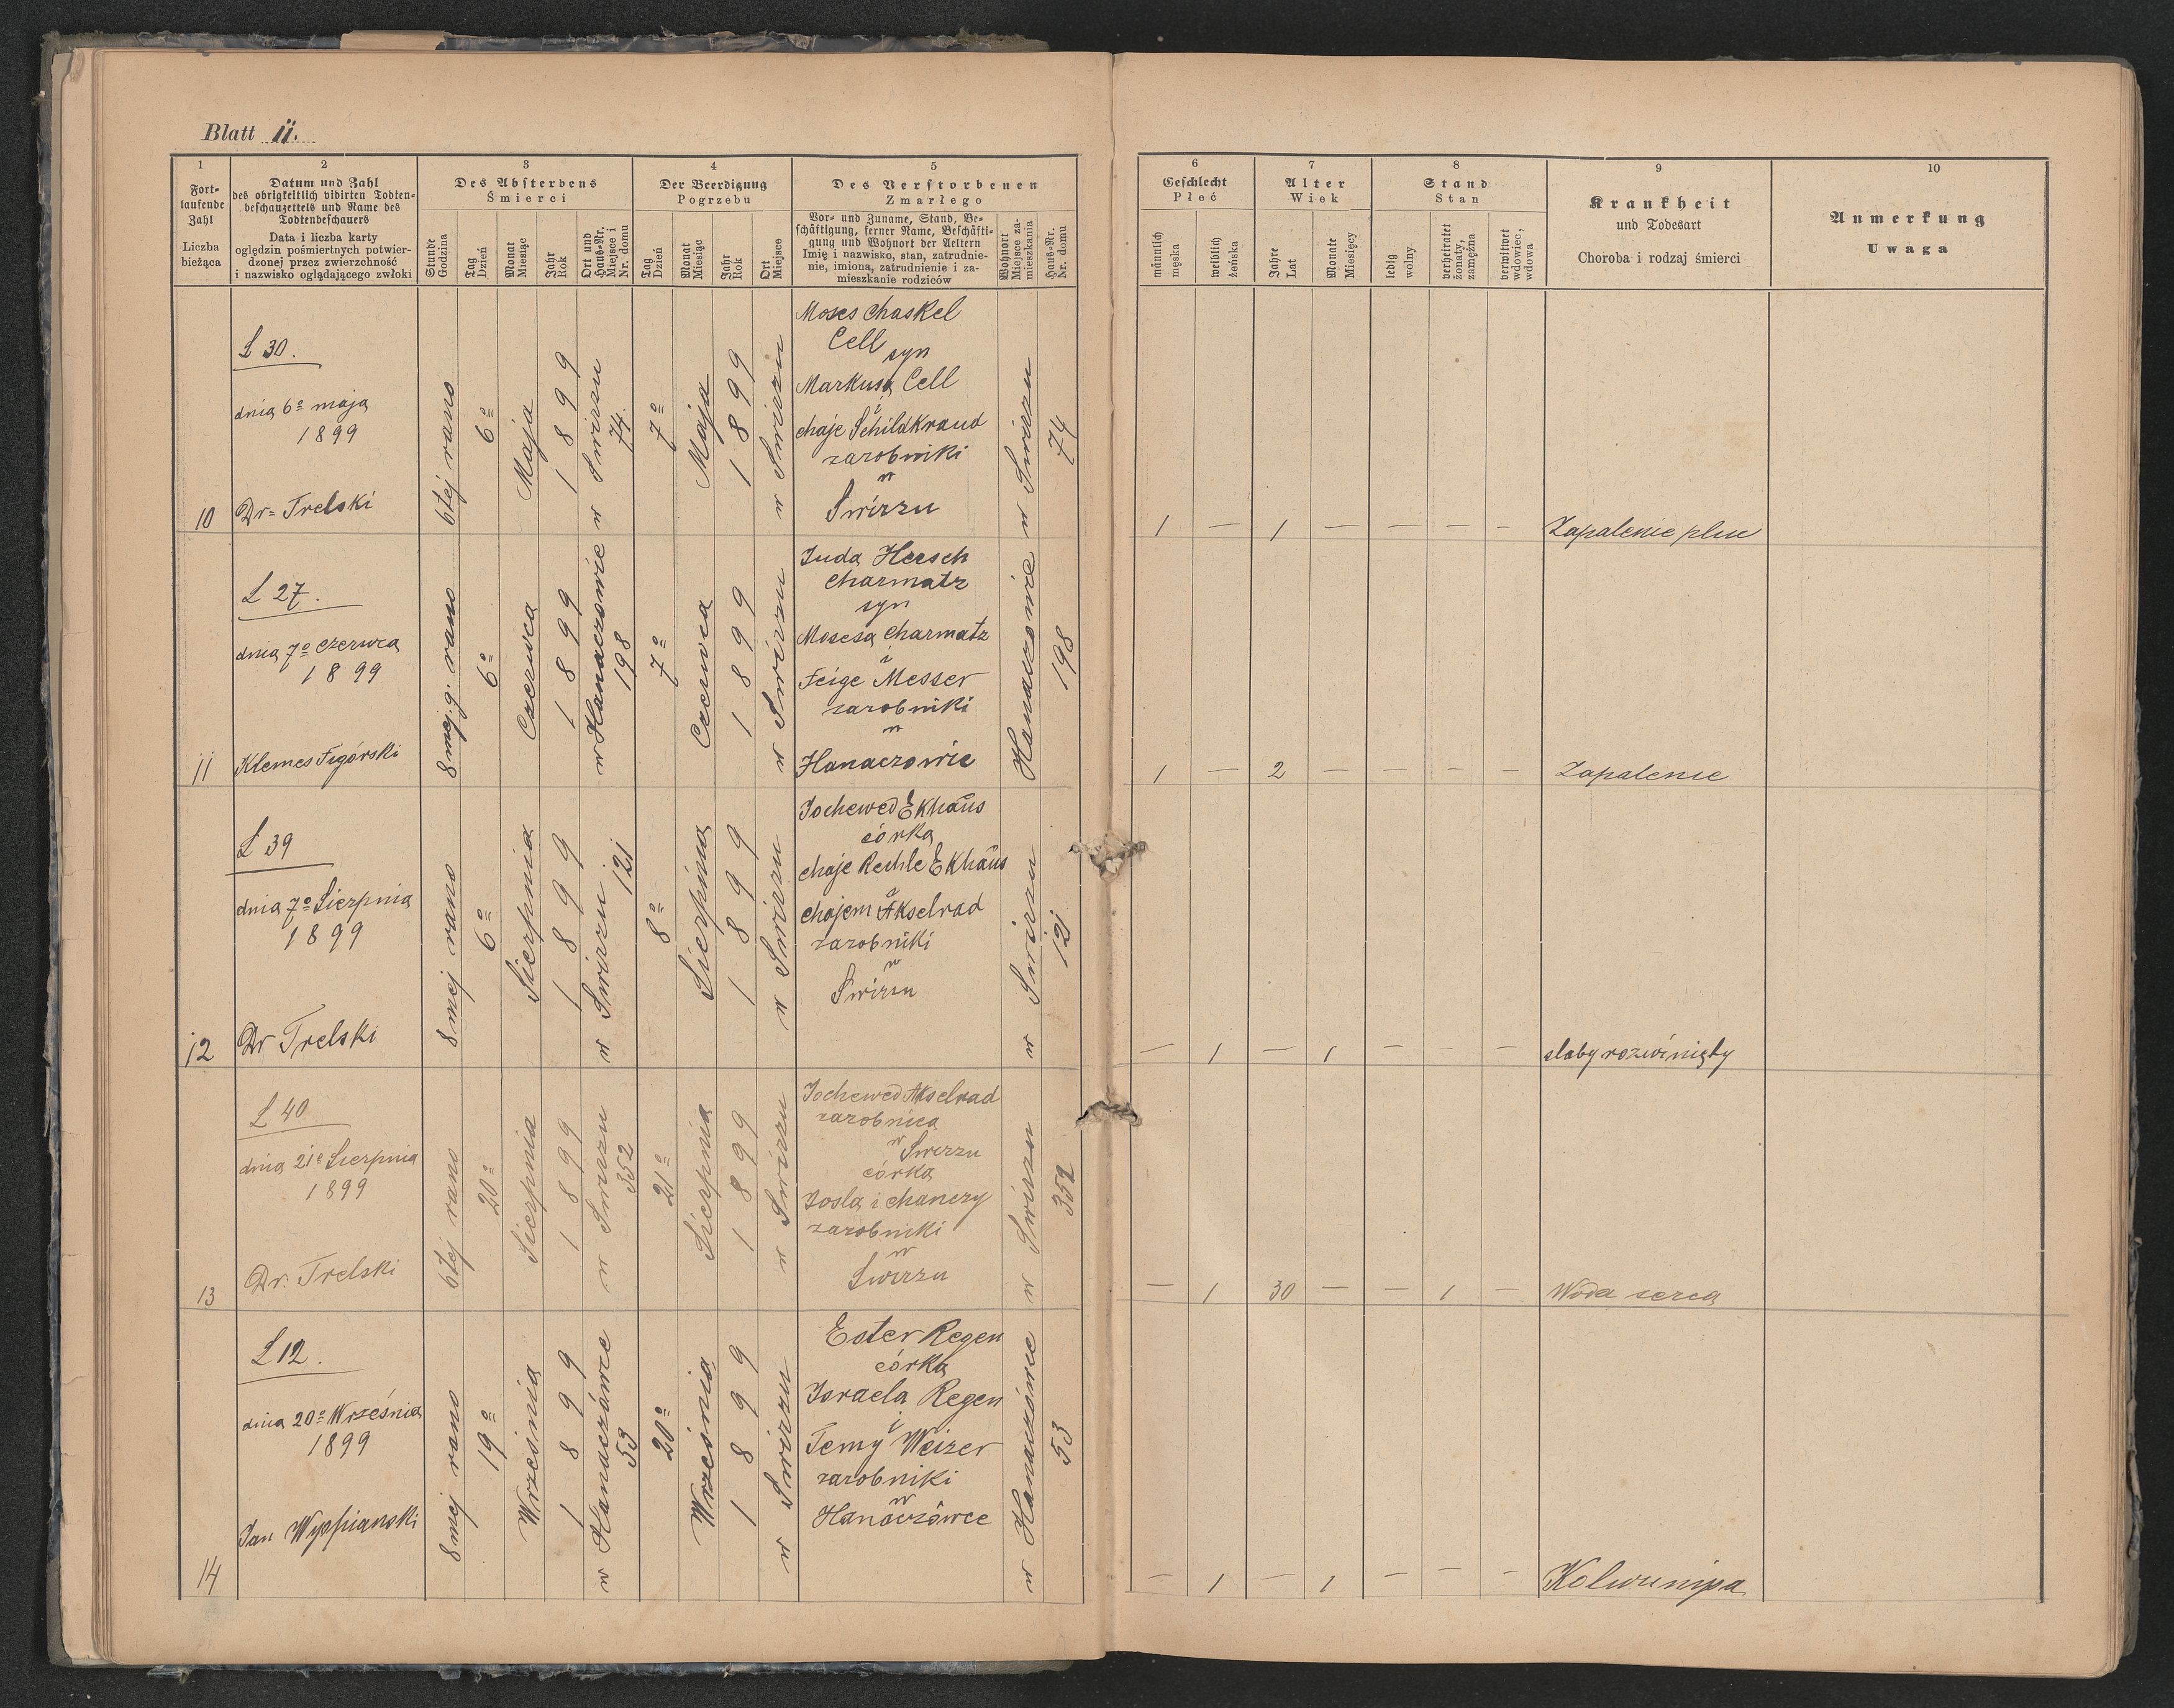 Blatt ii.
1
Fort-
laufende
Zahl
Liczba
bieżąca
2
Datum und Zahl
des obrigkeitlich vidirten Todten-
beschauzettels und Name des
Todtenbeschauers
Data i liczba karty
oględzin pośmiertnych potwier-
dzonej przez zwierzchność
i nazwisko oglądającego zwłoki
3
Des Absterbens
Śmierci
Stunde
Godzina
Tag
Dzień
Monat
Miesiąc
Jahr
Rok
Ort und
Haus-Nr.
Miejsce i
Nr. domu
4
Der Beerdigung
Pogrzebu
Tag
Dzień
Monat
Miesiąc
Jahr
Rok
Ort
Miejsce
5
Des Verstorbenen
Zmarłego
Vor- und Zuname, Stand, Be-
schäftigung, ferner Name, Beschäfti-
gung und Wohnort der Aeltern
Imię i nazwisko, stan, zatrudnie-
nie, imiona, zatrudnienie i za-
mieszkanie rodziców
Wohnort
Miejsce za-
mieszkania
Haus-Nr.
Nr. domu
6
Geschlecht
Płeć
männlich
męska
weiblich
żeńska
7
Alter
Wiek
Jahre
Lat
Monate
Miesięcy
8
Stand
Stan
ledig
wolny
verheiratet
żonaty,
zamężna
verwitwet
wdowiec,
wdowa
9
Krankheit
und Todesart
Choroba i rodzaj śmierci
10
Anmerkung
Uwaga
10
L 30.
dnia 6º maja
1899
Dr= Trelski
6tej rano
6º
Maja
1899
w Swirzu
74.
7º
Maja
1899
w Swirzu
Moses Chaskel
Cell syn
Markusa Cell
i
chaje Schildkraud
zarobniki
w
Swirzu
w Swirzu
74
1 — 1 — — — —
Zapalenie płuc
11
L 27.
dnia 7º Czerwca
1899
Klemes Figórski
8mej g. rano
6º
Czerwca
1899
w Hanaczowie
198
7º
Czerwca
1899
w Swirzu
Juda Hersch
Charmatz
syn
Mosesa Charmatz
i
Feige Messer
zarobniki
w
Hanaczowie
w Hanaczowie
198
1 — 2 — — — —
Zapalenie
12
L 39
dnia 7º Sierpnia
1899
Dr Trelski
8mej rano
6º
Sierpnia
1899
w Swirzu.
121
8º
Sierpnia
1899
w Swirzu
Jochewed Ekhaus
córka
chaje Rechle Ekhaus
i
chajem Akselrad
zarobniki
w
Swirzu
w Swirzu
121
— 1 — 1 — — —
slaby rozwinięty
13
L 40
dnia 21º Sierpnia
1899
Dr: Trelski
6tej rano
20º
Sierpnia
1899
w Swirzu
352
21º
Sierpnia
1899
w Swirzu
Jochewed Akselrad
zarobnica
w Swirzu
córka
Josla i chanczy
zarobniki
w
Swirzu
w Swirzu
352
— 1 30 — — 1 —
Woda serca
14
L 12.
dnia 20º Września
1899
Jan Wyspianski
8mej rano
19º
Wrzesnia
1899
w Hanaczówce
53
20º
Wrzesnia
1899
w Swirzu
Ester Regen
córka
Israela Regen
i
Temy Weizer
zarobniki
w
Hanaczówce
w Hanaczówce
53
— 1 — 1 — — —